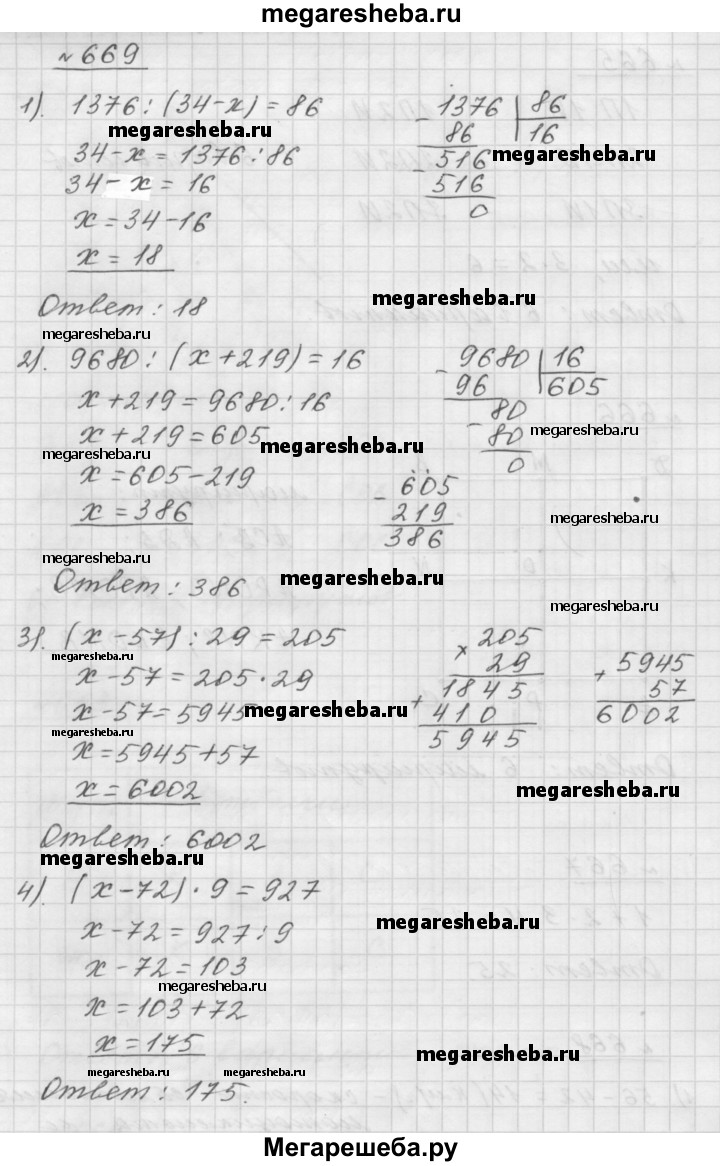 megaresheba.ru
№ 669
1). 1376 : (34-x) = 86
megaresheba.ru
34-x = 1376 : 86
34-x = 16
x = 34-16
x = 18
- 1376 | 86
86 | 16
megaresheba.ru
- 516
516
0
Ответ: 18
megaresheba.ru
megaresheba.ru
2). 9680 : (x+219) = 16
x+219 = 9680 : 16
x+219 = 605
megaresheba.ru
megaresheba.ru
x = 605-219
x = 386
- 9680 | 16
96 | 605
- 80
80
0
megaresheba.ru
- 605
219
386
megaresheba.ru
megaresheba.ru
Ответ: 386
megaresheba.ru
megaresheba.ru
3). (x-57) : 29 = 205
megaresheba.ru
x-57 = 205·29
x-57 = 5945
megaresheba.ru
megaresheba.ru
x = 5945+57
x = 6002
x 205
29
+ 1845
410
5945
+ 5945
57
6002
megaresheba.ru
Ответ: 6002
megaresheba.ru
4). (x-72) · 9 = 927
megaresheba.ru
x-72 = 927 : 9
x-72 = 103
megaresheba.ru
x = 103+72
x = 175
megaresheba.ru
megaresheba.ru
megaresheba.ru
Ответ: 175.
Мегарешеба.ру